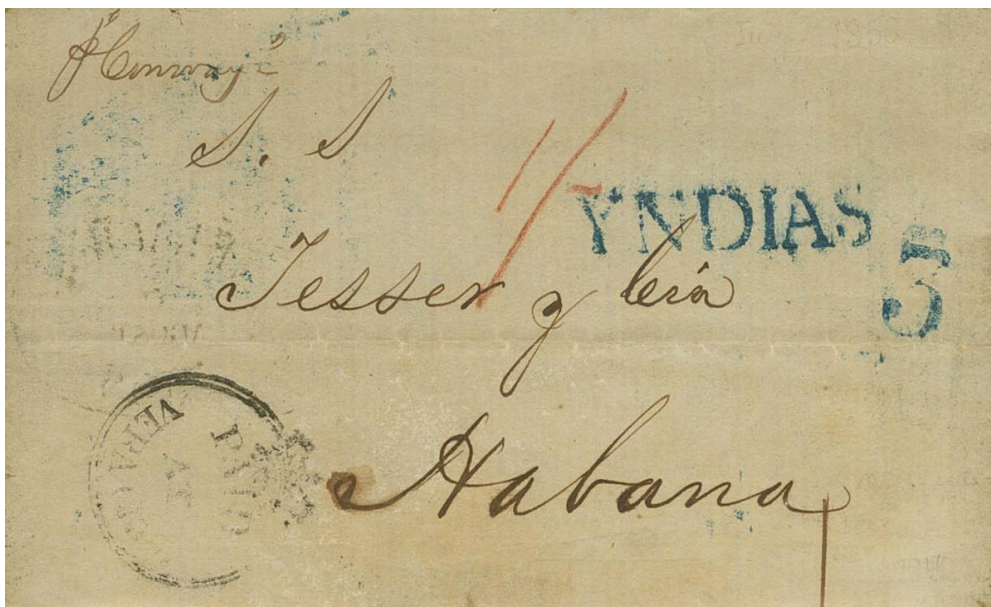 p "Conway"
S. S
1/
YNDIAS
5
Tesser y Cía
Habana
PAID
VERA